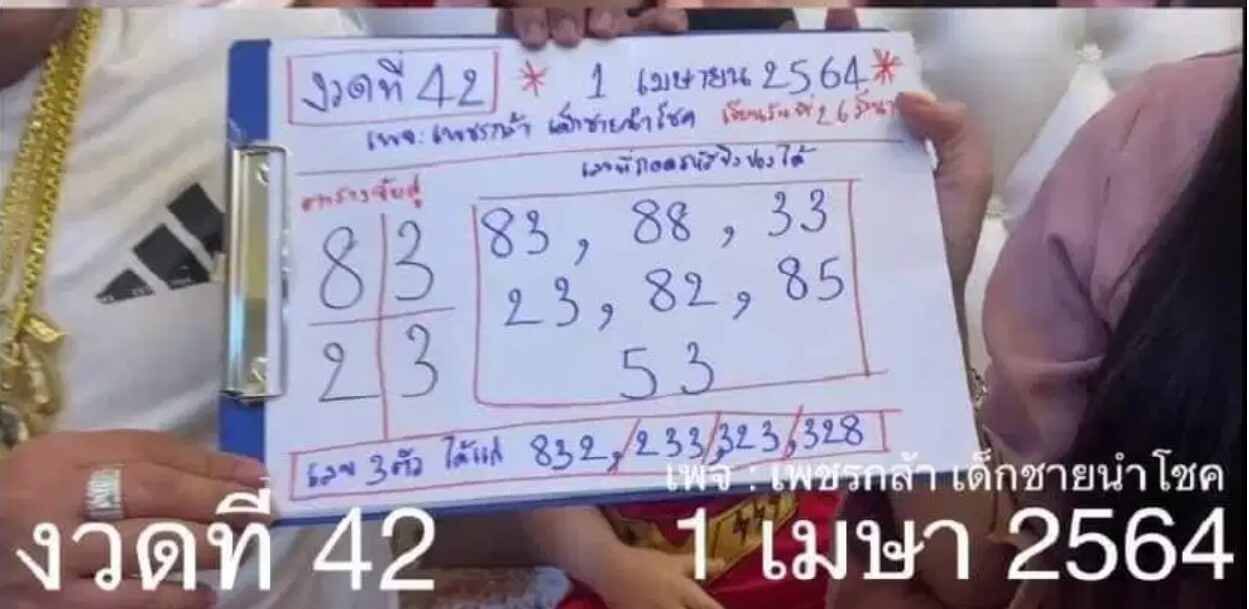 งวดที่ 42 * 1 เมษายน 2564 *
เพจ : เพชรกล้า เด็กชายนำโชค เขียนวันที่ 26 มีนา
ตารางจับคู่
8 3
2 3
83, 88, 33
23, 82, 85
53
เลข 3 ตัว ได้แก่ 832, / 233 / 323, / 328
เพจ : เพชรกล้า เด็กชายนำโชค
งวดที่ 42 1 เมษา 2564